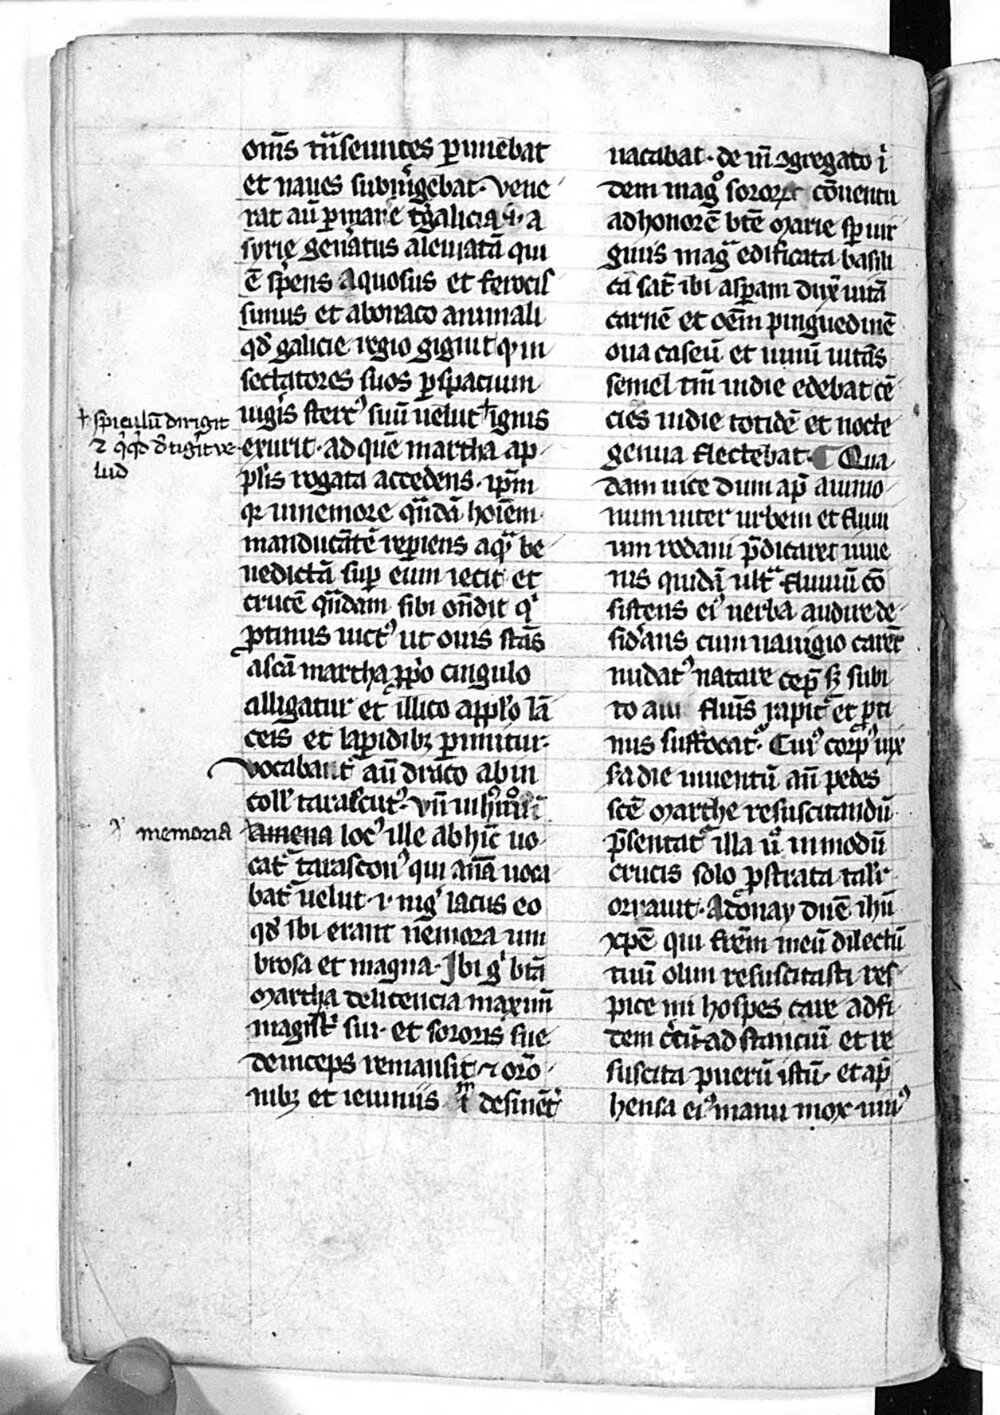 om̅s tn̅seuntes p̱imebat
et naues subm̅gebat. vene
rat au̅ p̱ mare
syrie gen̅atus a leuiata̅ qui
e̅ sp̱ens aquosus et ferocis
simus et abonaco animali
qd̅ galicie regio gignit
sectatores suos p̱ spacium
iugis sterc⁹ suu̅ uelut ignis
✝ spiculu̅ dirigit
exurit. ad que̅ martha ap
⁊ qͥqͥd t̅igit ve
lud
plis rogata accedens. ip̅m
qr in nemore qn̅da̅ hoi̅em
manducāte̅ rep̱iens aqͣ be
nedicta̅ sup̱ eum iecit et
cruce̅ qn̅dam sibi on̅dit qͥ
ꝓtinus uict⁹ ut ouis sta̅s
a sc̅a martha ꝓp̅o cingulo
alligatur et illico a pp̅lo la̅
ceis et lapidibꝫ p̱imitur.
vocabant au̅ draco ab in
col̅ tarascur⁹. vn̅ in h⁹
memoria
amena loc⁹ ille ab hi̅c uo
cat̅ tarascon⁹ qui an̅a uoca
bat̅ uelut .i. nig̅ lacus eo
qd̅ ibi erant ne̅mora um
brosa et magna. Ibi gͥ bt̅a
martha de licencia maxim̅
magist̅ sui. et sororis sue
deinceps remansit ⁊ or̅o
nibꝫ et ieiuniis i̅desine̅t̅
uacabat. de in̅ ꝯgregato i̅
dem mag̊ soror̅ co̅uentu
ad honore̅ bt̅e marie sp̱ uir
ginis magͣ edificata basili
ca sat̅ ibi asp̱am dux̅ uita̅
carne̅ et oe̅m pinguedine̅
oua caseu̅ et uinu̅ uita̅s
semel tm̅ in die edebat ce̅
cies in die totide̅ et nocte
genua flectebat. Qua
dam uice dum ap̅ auinio
num inter urbem et fluui
um rodani p̅dicaret iuue
nis quida̅ ultͣ fluuiu̅ co̅
sistens ei⁹ uerba audire de
sid̅ans cum nauigio carer̅
nudat⁹ natare cep̅ sꝫ subi
to a ui fluis̅ rapit̅ et ꝓti
nus suffocat̅. Cui⁹ corp⁹ uix
sa die inuentu̅ an̅ pedes
sc̅e marthe resuscitandu̅
p̅sentat̅ illa u̅ in modu̅
crucis solo p̱strata talr̅
orauit. Adonay dn̅e ih̅u
xpe̅ qui fr̅em meu̅ dilectu̅
tuu̅ olim resuscitasti res
pice mi hospes care ad fi
dem c̅cu̅ad stanciu̅ et re
suscita pueru̅ istu̅. et ap̅
hensa ei⁹ manu mox uiu⁹